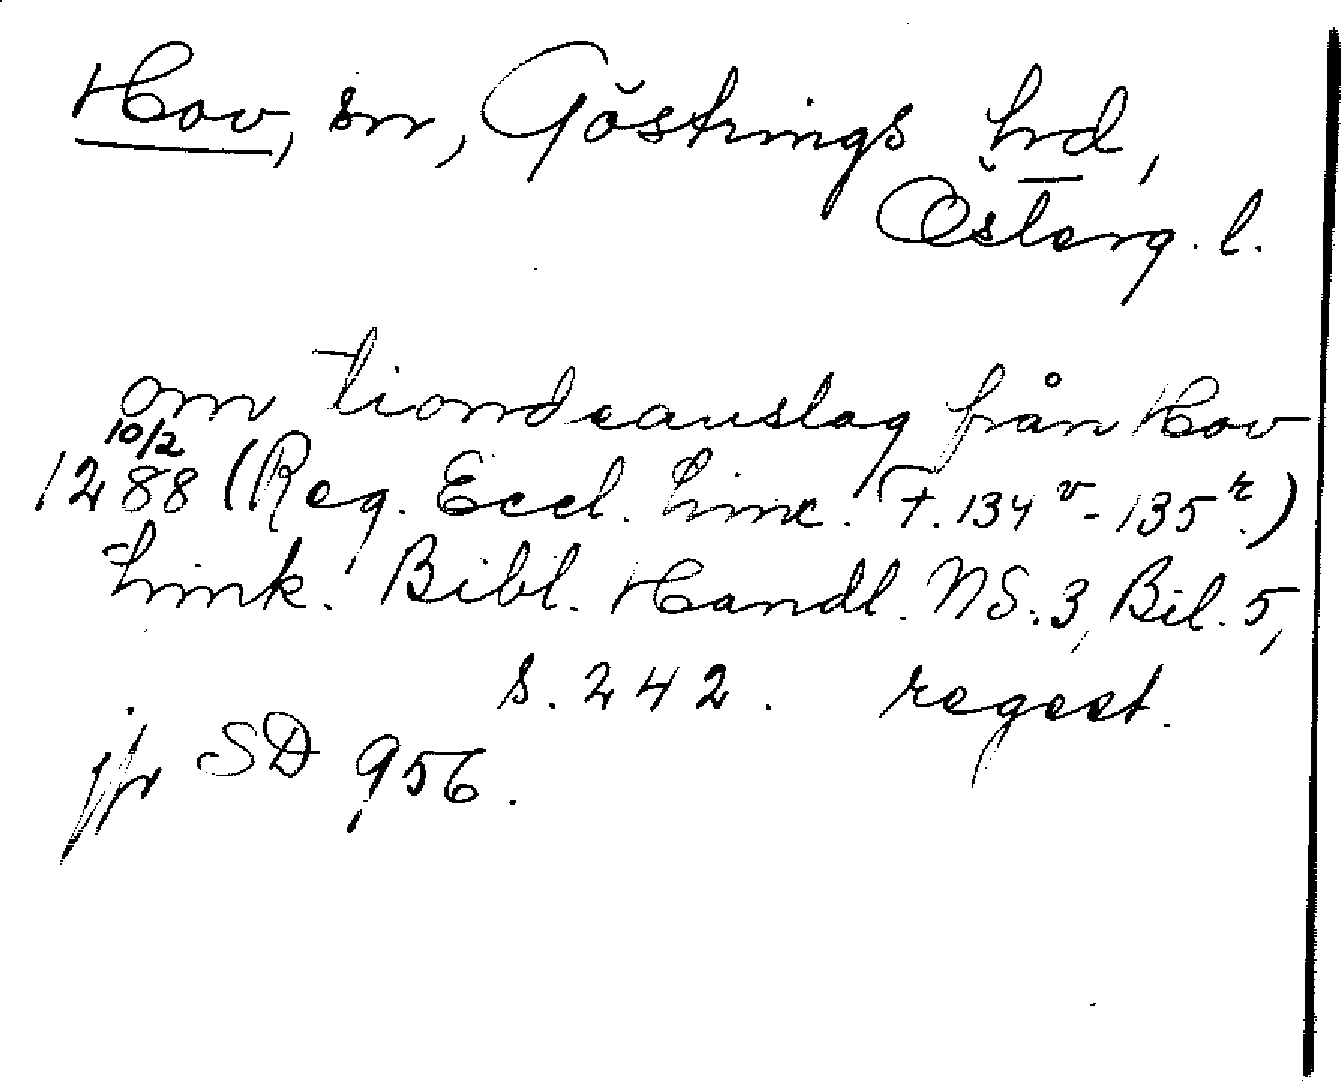 Hov, sn, Göstrings hrd,
Österg. l.
om tiondeanslag från Hov
10/2
1288 (Reg. Eccl. Linc. F. 134 v - 135 r.)
Link. Bibl. Handl. NS. 3, Bil. 5,
s. 242. regest.
jfr SD 956.